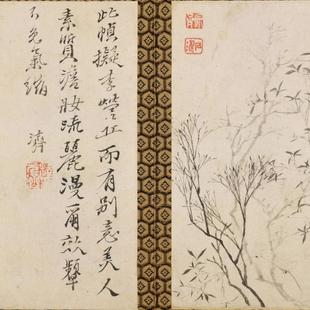 此幀擬李營丘而有別意美人
素質澹妝疏麗漫爾效顰
不免氣
濟